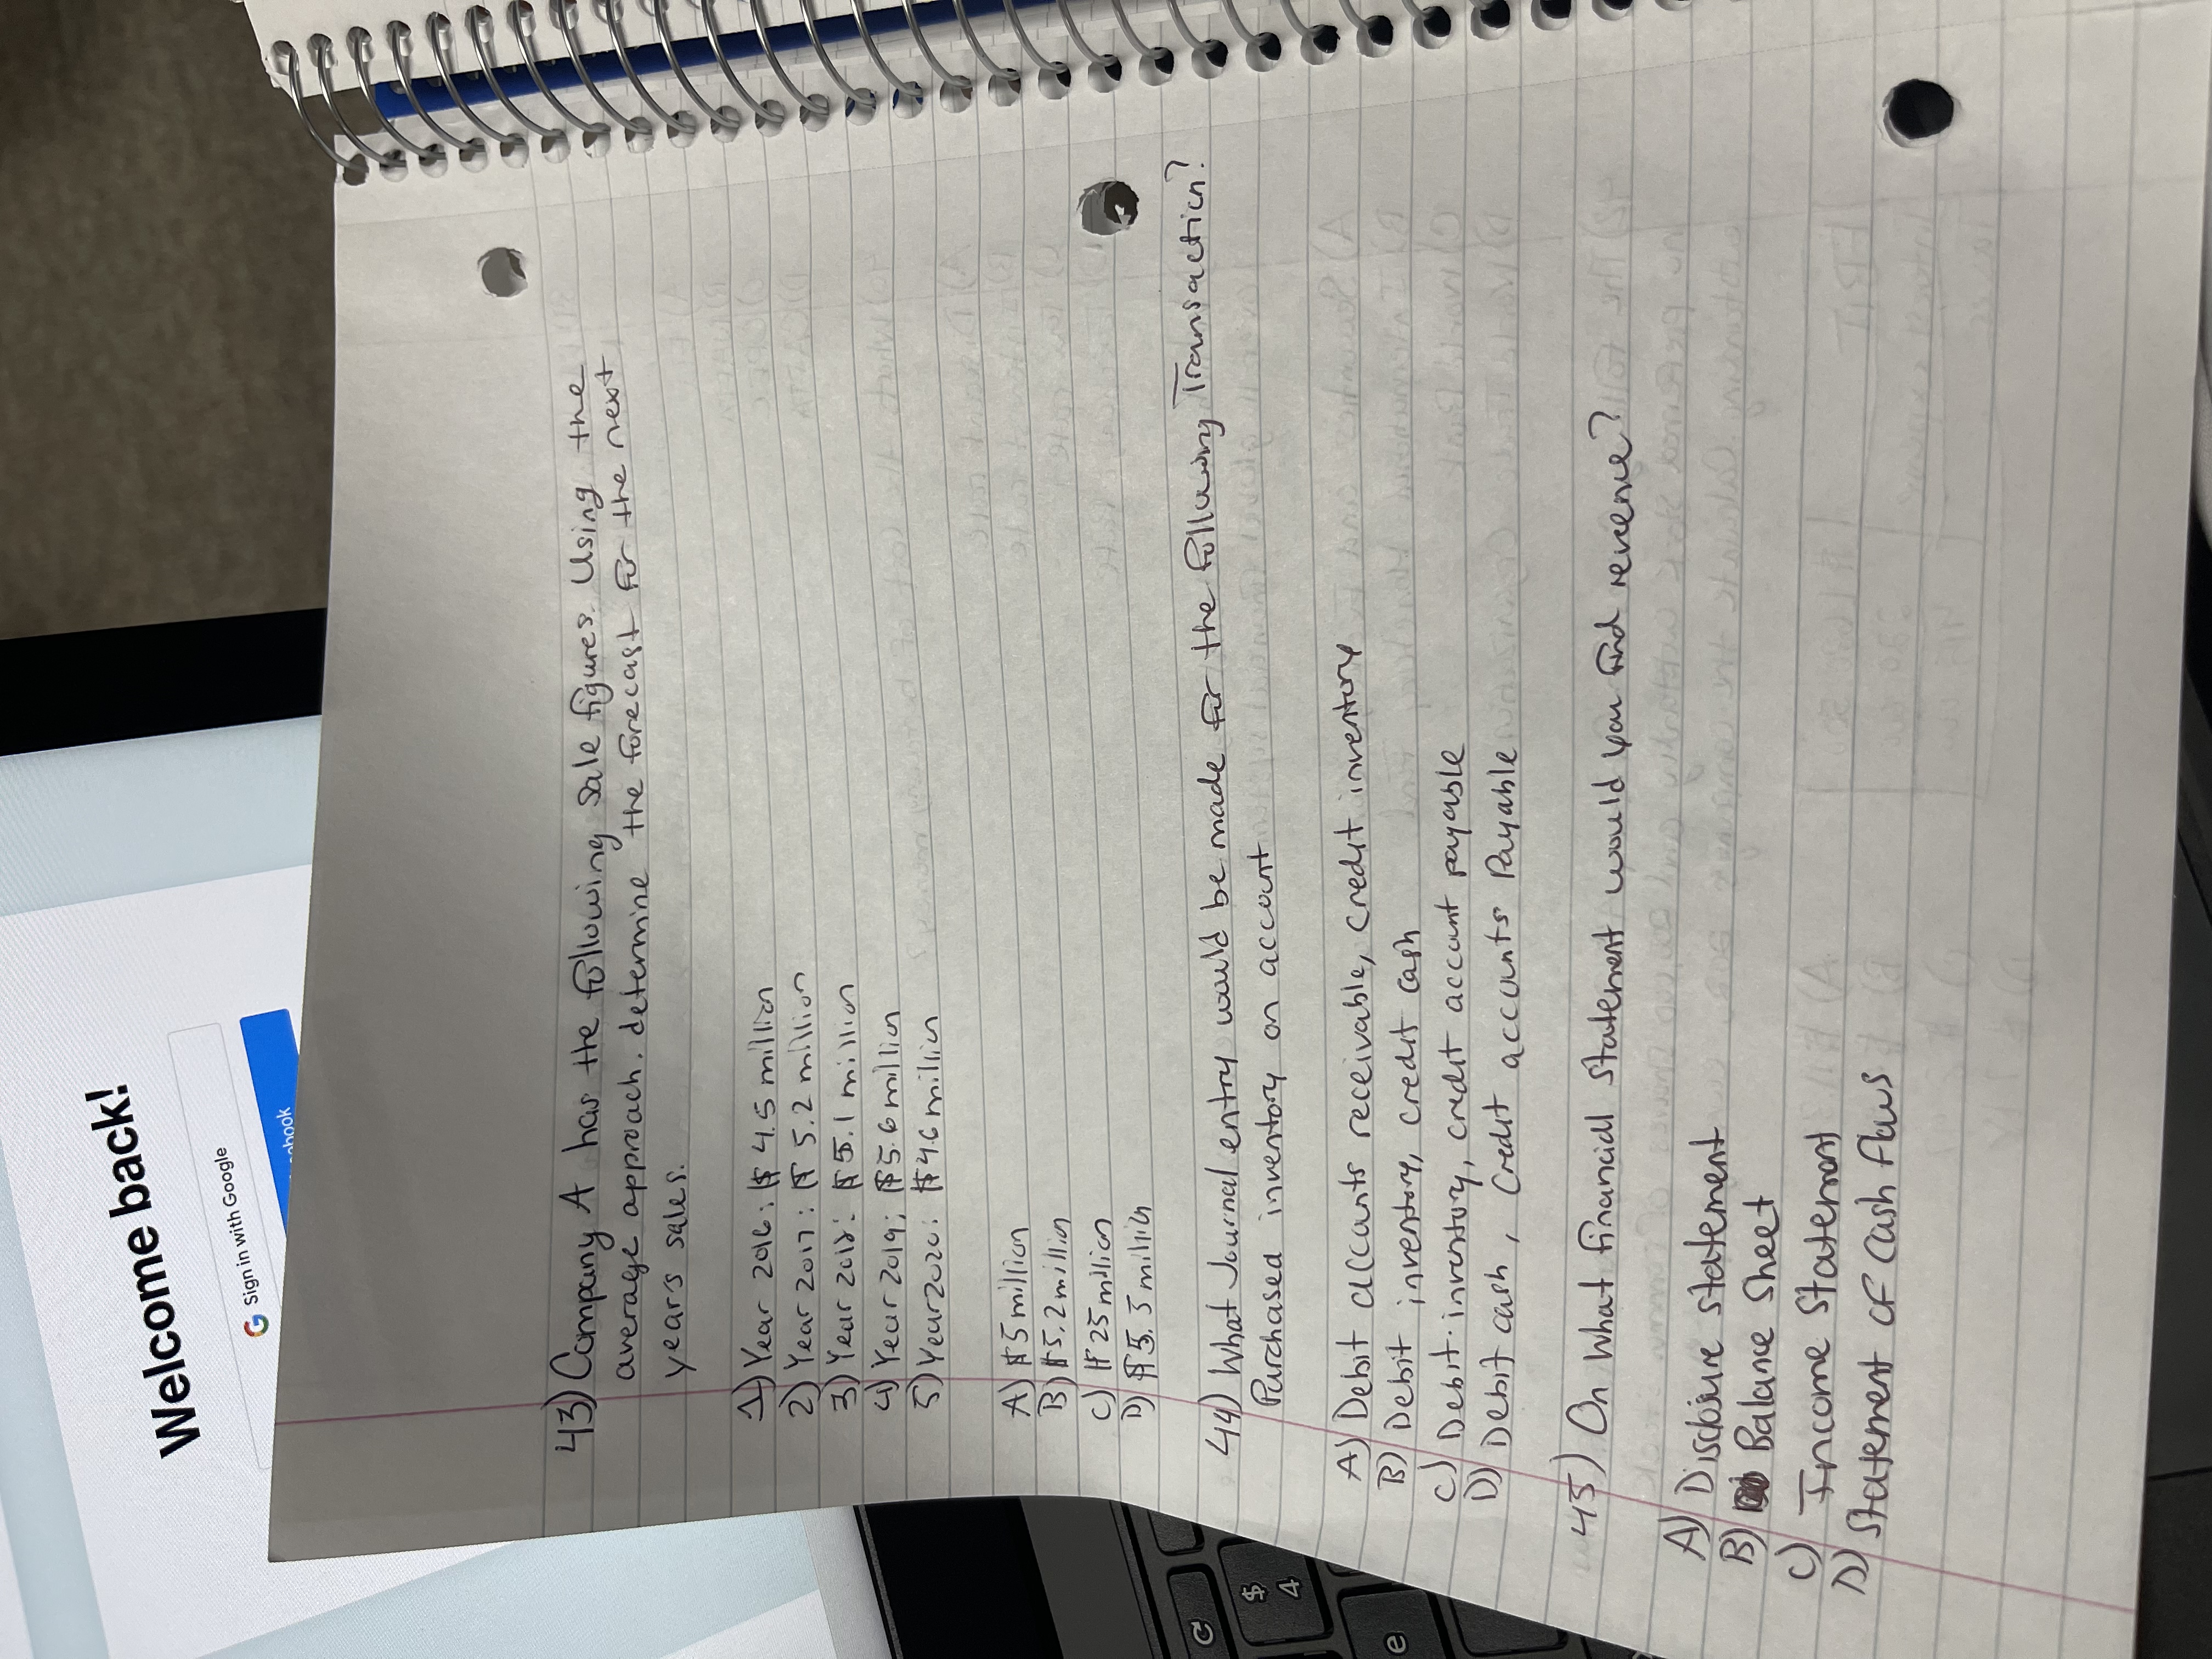 Welcome back!
G Sign in with Google
43) Company A has the following sale figures. Using the
average approach. determine the forecast for the next
years sales.
1) Year 2016: $4.5 million
2) Year 2017: $5.2 million
3) Year 2018: $5.1 million
4) Year 2019: $5.6 million
5) Year 2020: $4.6 million
A) $5 million
B) $5.2 million
C) $25 million
D) $5.5 million
44) What Journal entry would be made for the following Transaction?
Purchased inventory on account
A) Debit accounts receivable, credit inventory
B) Debit inventory, credit cash
C) Debit inventory, credit account payable
D) Debit cash, Credit accounts Payable
45) On What financial Statement would you find revenue?
A) Disclosure statement
B) Balance Sheet
C) Income Statement
D) Statement of Cash flows
$
4
e